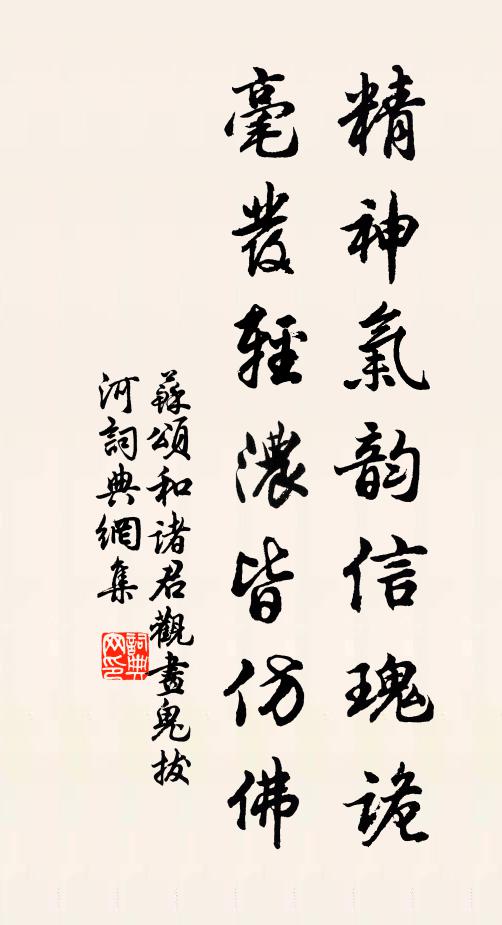 精神氣韵信瑰詭
毫發輕濃皆仿佛
蘇頌和諸君觀畫鬼拔
河詞典網集
詞典
网印